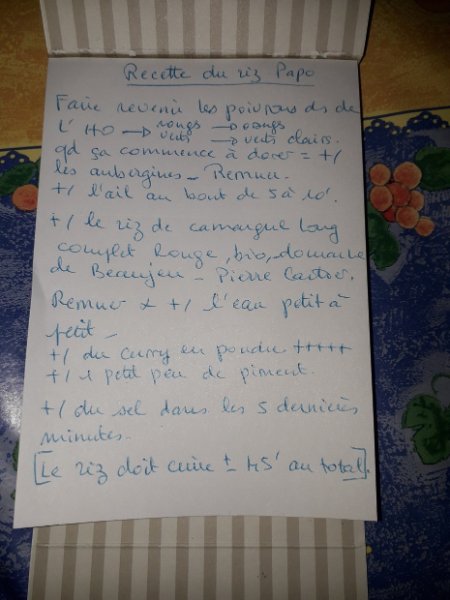 Recette du riz Papo
Faire revenir les poivrons ds de
l'HO → rouges → orange
verts → verts clairs.
qd ça commence à dorer = +/
les aubergines - Remuer.
+/ l'ail au bout de 5 à 10'.
+/ le riz de camargue long
complet Rouge, bio, domaine
de Beaujeu - Pierre
Remuer × +/ l'eau petit à
petit -
+/ du curry en poudre +++++
+/ 1 petit peu de piment.
+/ du sel dans les 5 dernières
minutes.
[Le riz doit cuire ± 45' au total].